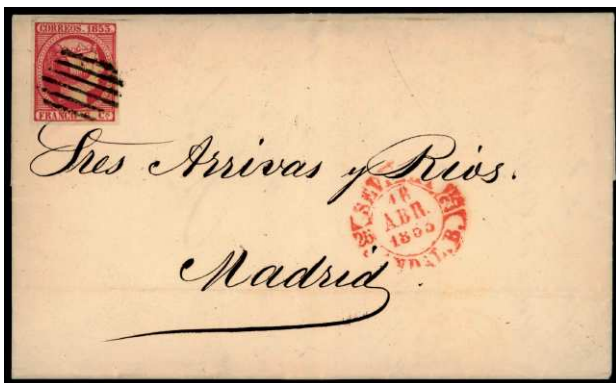 CORREOS. 1853
FRANCO
Sres Arrivas y Rios.
SEVILLA
16
ABR.
1853
Madrid.